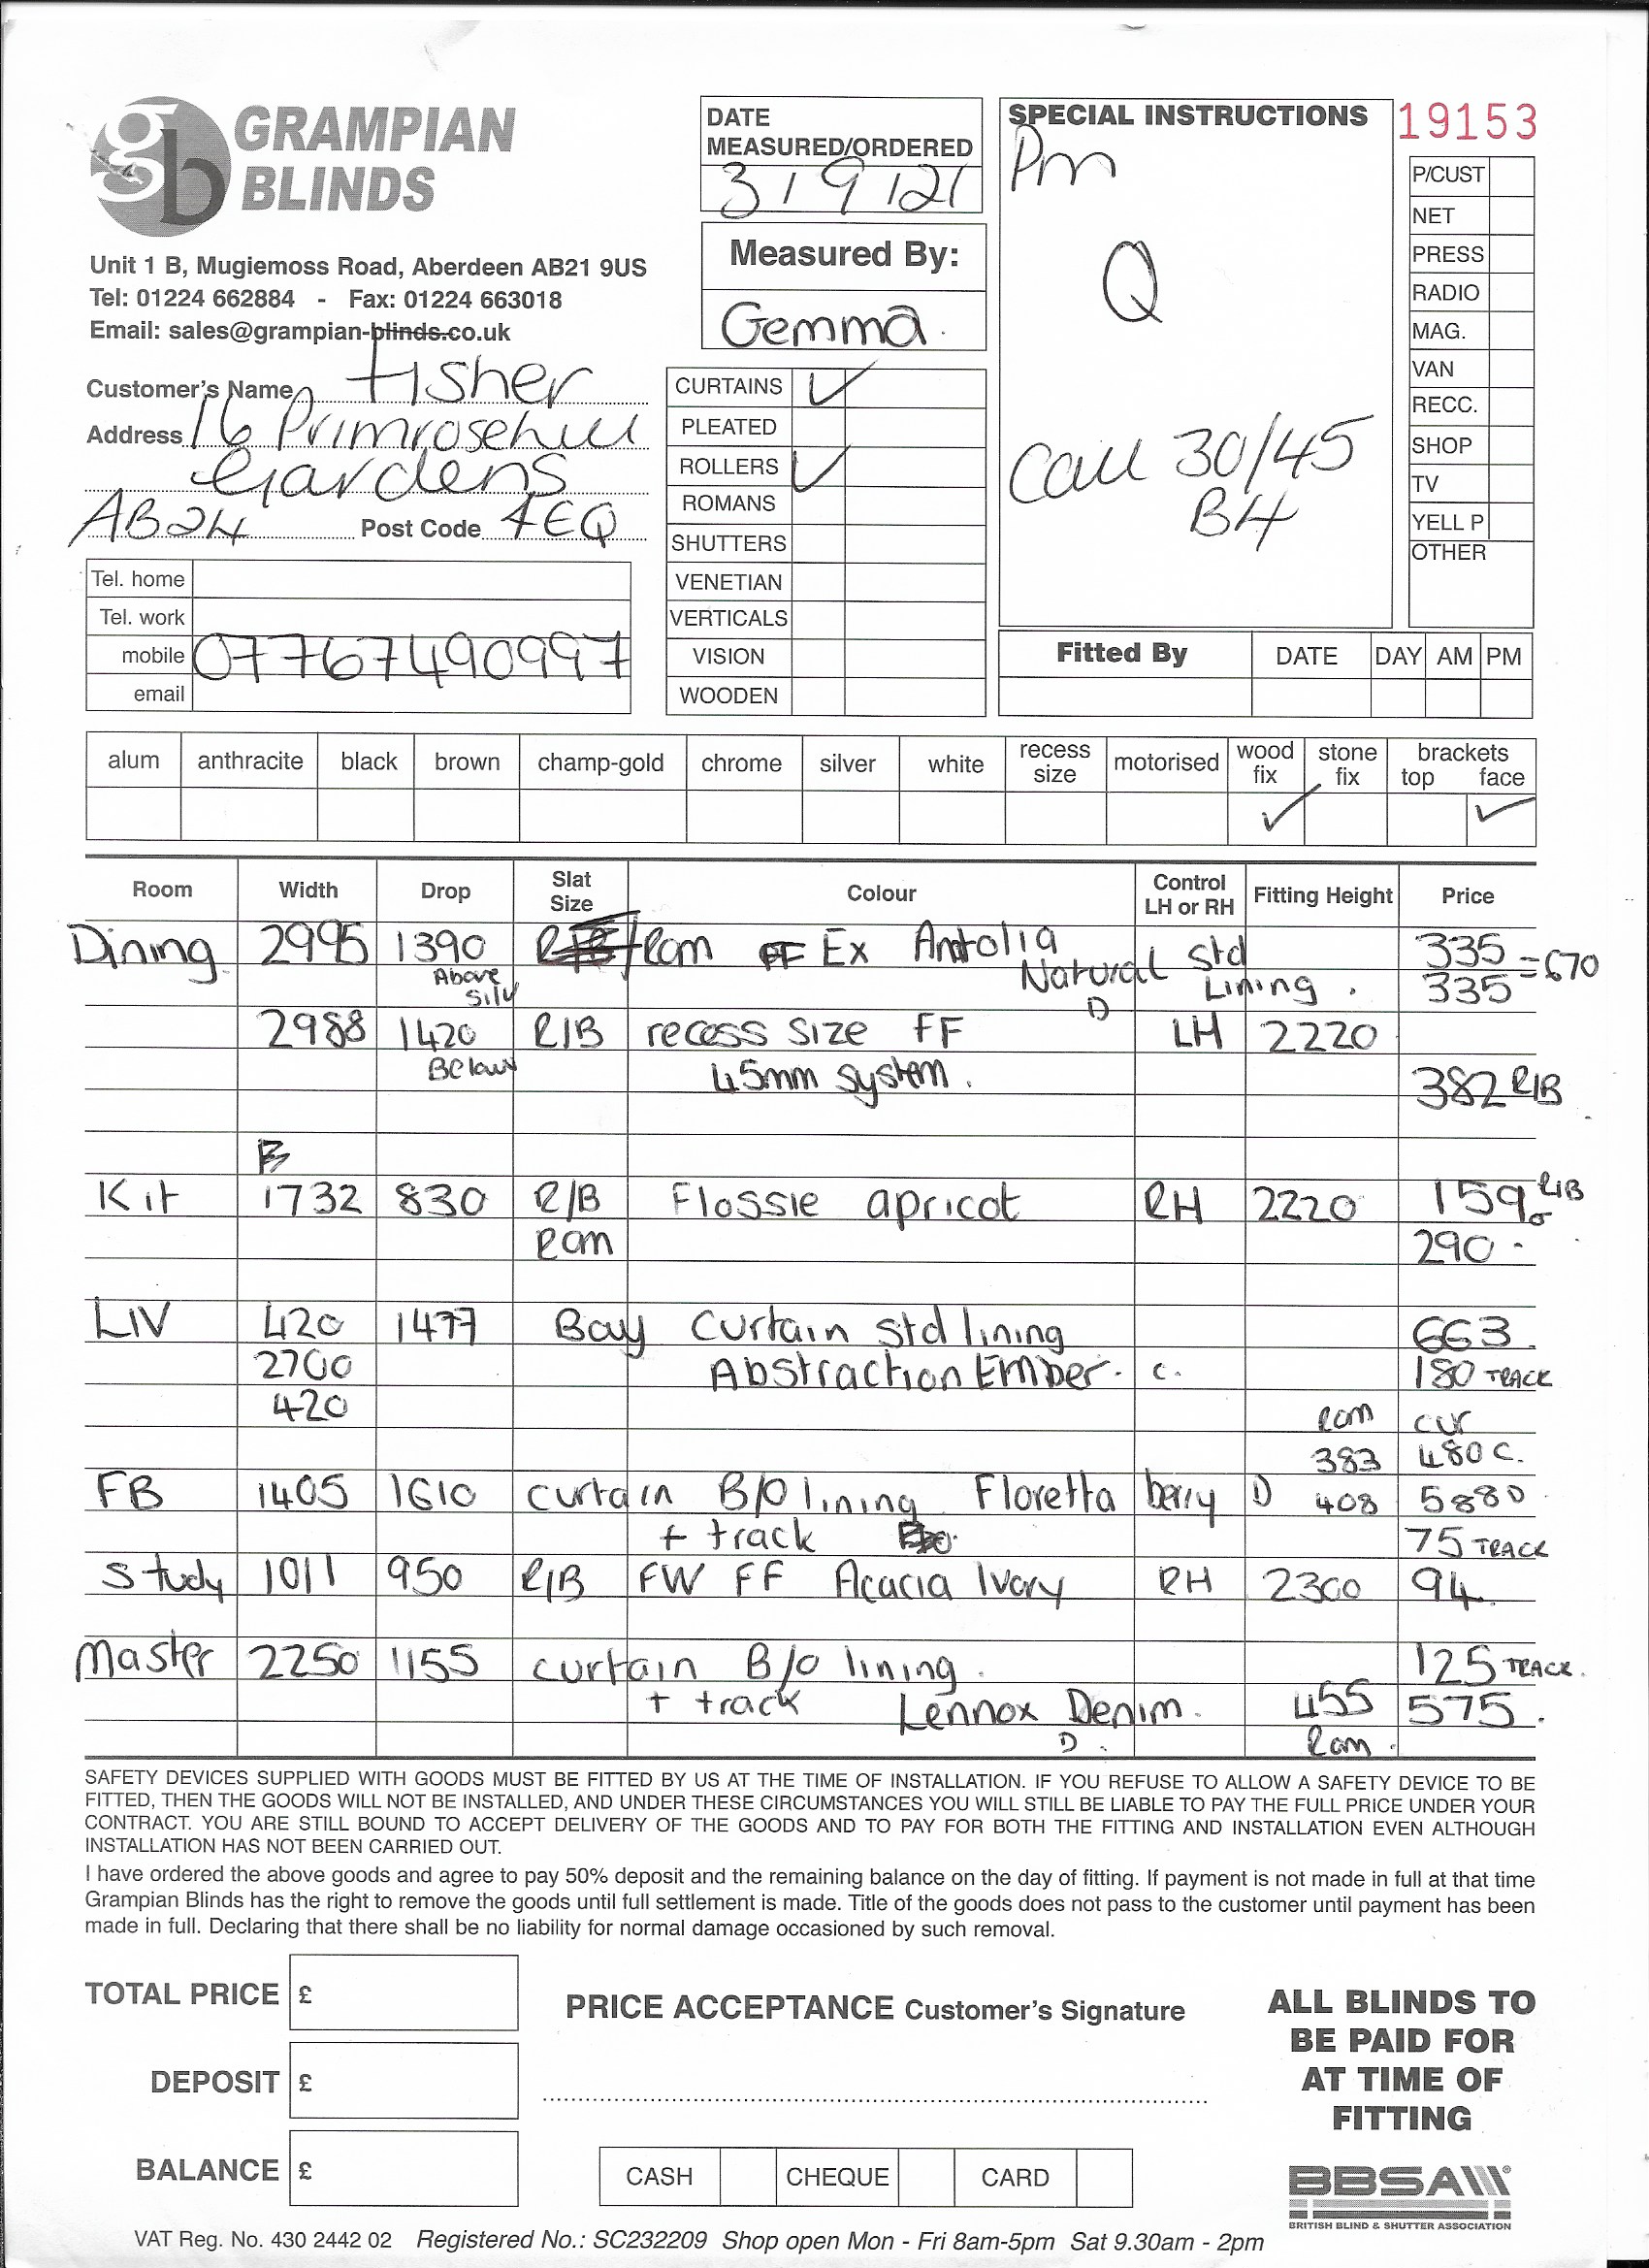 GRAMPIAN
BLINDS
Unit 1 B, Mugiemoss Road, Aberdeen AB21 9US
Tel: 01224 662884 - Fax: 01224 663018
Email: sales@grampian-blinds.co.uk
Customer's Name Fisher
Address 16 Primrosehill
Gardens
AB24 Post Code 4EQ
Tel. home
Tel. work
mobile 07767490997
email
DATE
MEASURED/ORDERED
3/9/21
Measured By:
Gemma.
CURTAINS ✓
PLEATED
ROLLERS ✓
ROMANS
SHUTTERS
VENETIAN
VERTICALS
VISION
WOODEN
SPECIAL INSTRUCTIONS
Pm
Q
Call 30/45
B4
19153
P/CUST
NET
PRESS
RADIO
MAG.
VAN
RECC.
SHOP
TV
YELL P
OTHER
Fitted By DATE DAY AM PM
alum anthracite black brown champ-gold chrome silver white recess size motorised wood fix stone fix brackets top face
✓ ✓
Room Width Drop Slat Size Colour Control LH or RH Fitting Height Price
Dining 2995 1390 Rom Ex Antolia Std 335 = 670
Above Sill Natural Lining. 335
D
2988 1420 R/B recess size FF LH 2220
Below 45mm system. 382 R/B
Kit 1732 830 R/B Flossie apricot RH 2220 159 R/B
Rom 290.
LIV 420 1477 Bay Curtain Std lining 663.
2700 Abstraction Ember. c. 180 TRACK
420 Rom cur
383 480 C.
FB 1405 1610 curtain B/O lining Floretta berry D 408 588 D
+ track 75 TRACK
Study 1011 950 R/B FW FF Acacia Ivory RH 2300 94.
Master 2250 1155 curtain B/O lining. 125 TRACK.
+ track Lennox Denim. 455 575.
D. Rom.
SAFETY DEVICES SUPPLIED WITH GOODS MUST BE FITTED BY US AT THE TIME OF INSTALLATION. IF YOU REFUSE TO ALLOW A SAFETY DEVICE TO BE
FITTED, THEN THE GOODS WILL NOT BE INSTALLED, AND UNDER THESE CIRCUMSTANCES YOU WILL STILL BE LIABLE TO PAY THE FULL PRICE UNDER YOUR
CONTRACT. YOU ARE STILL BOUND TO ACCEPT DELIVERY OF THE GOODS AND TO PAY FOR BOTH THE FITTING AND INSTALLATION EVEN ALTHOUGH
INSTALLATION HAS NOT BEEN CARRIED OUT.
I have ordered the above goods and agree to pay 50% deposit and the remaining balance on the day of fitting. If payment is not made in full at that time
Grampian Blinds has the right to remove the goods until full settlement is made. Title of the goods does not pass to the customer until payment has been
made in full. Declaring that there shall be no liability for normal damage occasioned by such removal.
TOTAL PRICE £
DEPOSIT £
BALANCE £
PRICE ACCEPTANCE Customer's Signature
CASH CHEQUE CARD
ALL BLINDS TO
BE PAID FOR
AT TIME OF
FITTING
BBSA
BRITISH BLIND & SHUTTER ASSOCIATION
VAT Reg. No. 430 2442 02 Registered No.: SC232209 Shop open Mon - Fri 8am-5pm Sat 9.30am - 2pm